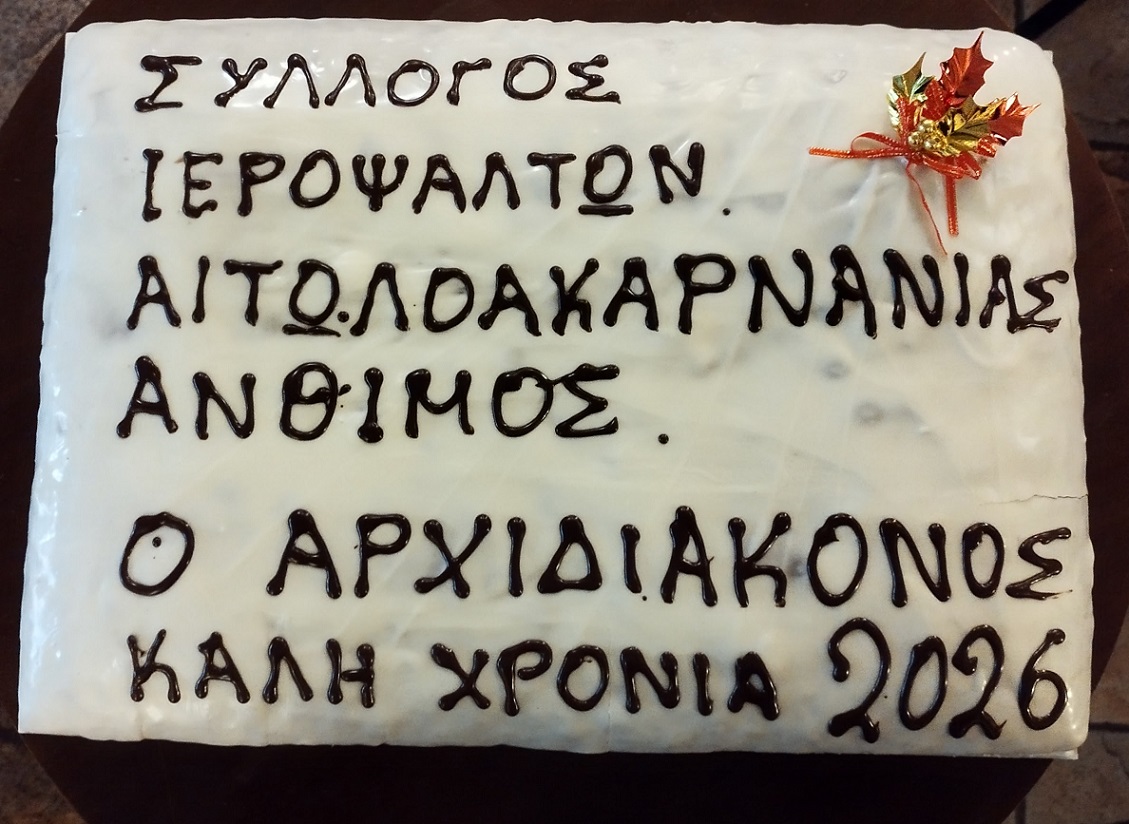 ΣΥΛΛΟΓΟΣ
ΙΕΡΟΨΑΛΤΩΝ.
ΑΙΤΩΛΟΑΚΑΡΝΑΝΙΑΣ
ΑΝΘΙΜΟΣ.
Ο ΑΡΧΙΔΙΑΚΟΝΟΣ
ΚΑΛΗ ΧΡΟΝΙΑ 2026